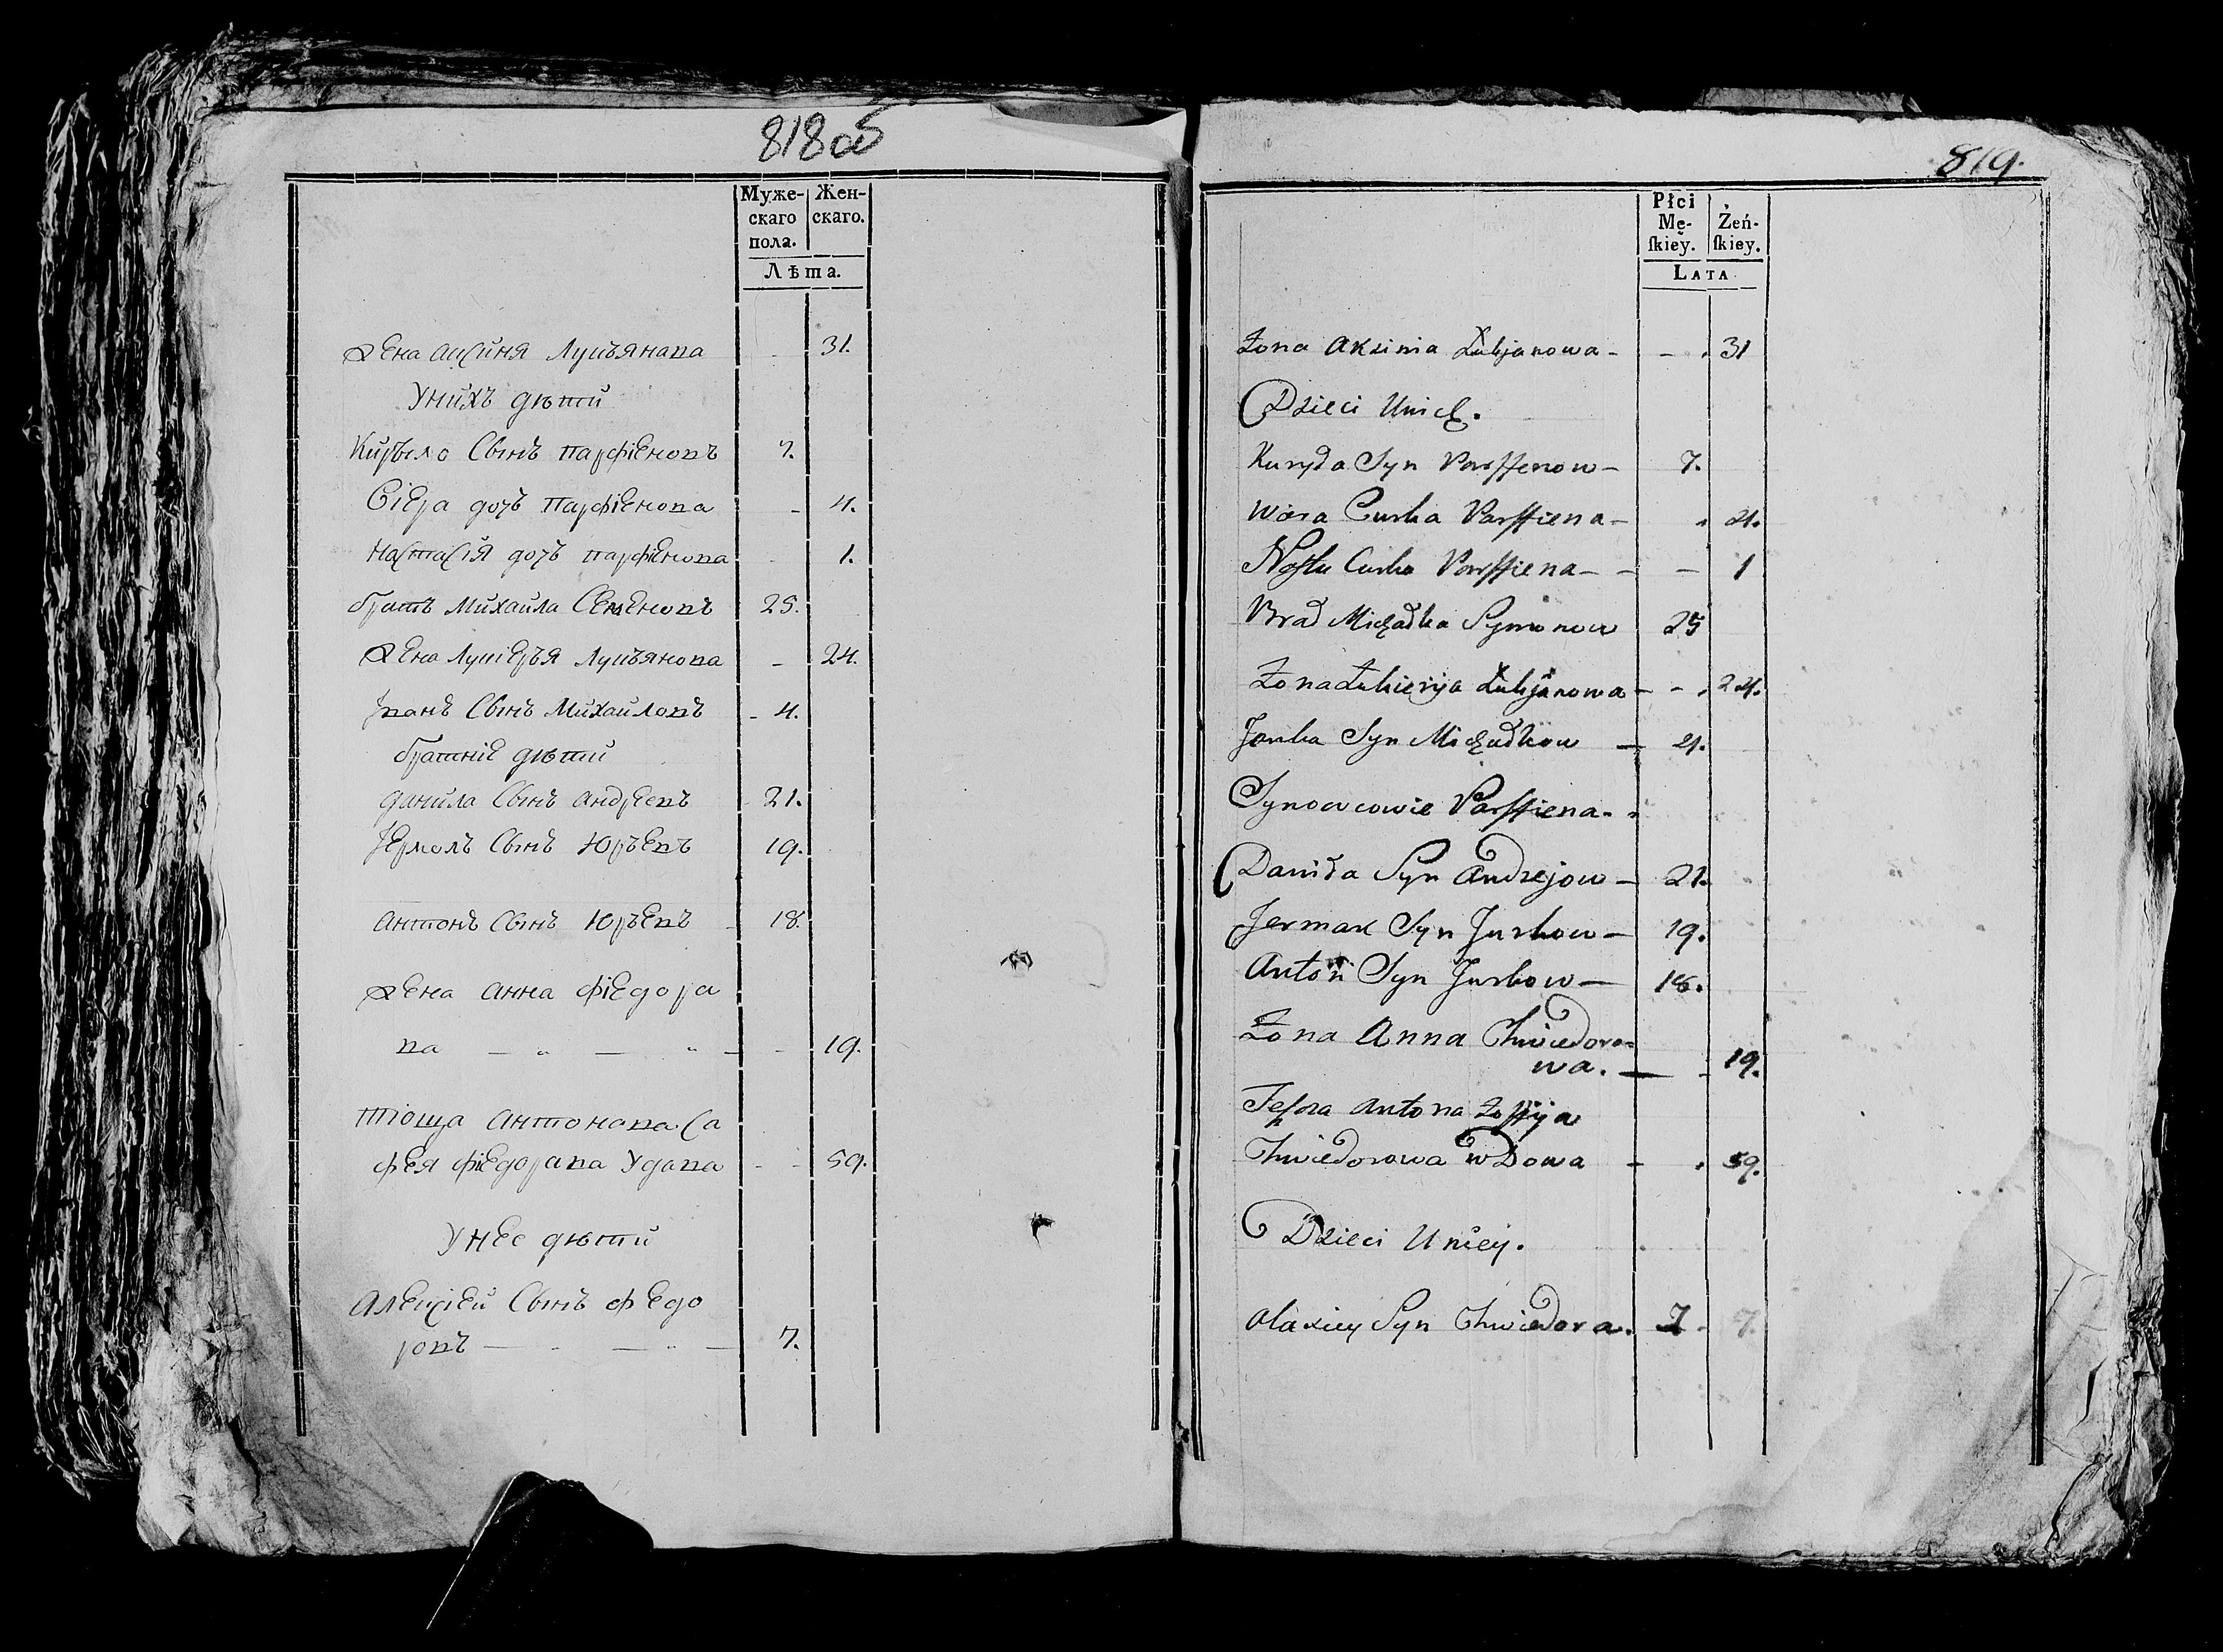 818об
Муже- Жен-
скаго скаго.
пола.
Лѣта.
Жена Аксиня Лукъянава 31.
У нихъ дѣти
Кирыло Сынъ Парфіеновъ 7.
Віера дочъ Парфіенова - 4.
Настасія дочъ Парфіенова 1.
братъ Михаила Семеновъ 25.
Жена Лукіеръя Лукъянова - 24.
Іванъ Сынъ Михаиловъ - 4.
братніе дѣти
Данила Сынъ Андреевъ 21.
Іермолъ Сынъ Юръевъ 19.
Антонъ Сынъ Юръевъ 18.
Жена Анна Фіедора
ва — " — " — 19.
тіоща Антонава Са
фея Фіедорава Удава - - 59.
У нее дѣти
Алексіей Сынъ Федо
ровъ — - — " — 7.
819.
Płci Żeń-
Mę- ſkiey.
ſkiey.
LATA
Żona Aksinia Łukjanowa - - . 31
Dzieci Unich.
Kuryła Syn Parffenow - 7.
Wiera Curka Parffiena - . 4.
Nastu Curka Parffiena - - - 1
Brad Michałka Symonow 25
Żona Łukierija Łukjanowa - - . 24.
Janka Syn Michałkow — 4.
Synowcowie Parffiena - -
Daniła Syn Andrejow — 21.
Jermak Syn Jurkow — 19.
Anton Syn Jurkow — 18.
Żona Anna Chwiedoro=
wa. — - 19.
Teszcza Antona Zoffija
Chwiedorowa wDowa - . 59.
Dzieci Uniey.
Olaxiey Syn Chwiedora. 7. 7.